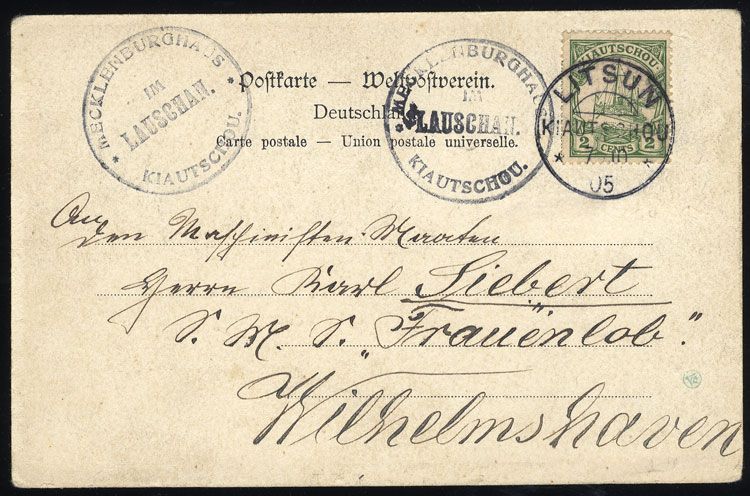 MECKLENBURGHAUS
IM
LAUSCHAN.
KIAUTSCHOU.
Postkarte — Weltpostverein.
Deutschland
Carte postale — Union postale universelle.
MECKLENBURGHAUS
IM
LAUSCHAN.
KIAUTSCHOU.
KIAUTSCHOU
2 CENTS 2
LITSUN
KIAUTSCHOU
05
An
den Maschinisten-Maaten
Herrn Karl Siebert
S. M. S. „Frauenlob".
Wilhelmshaven